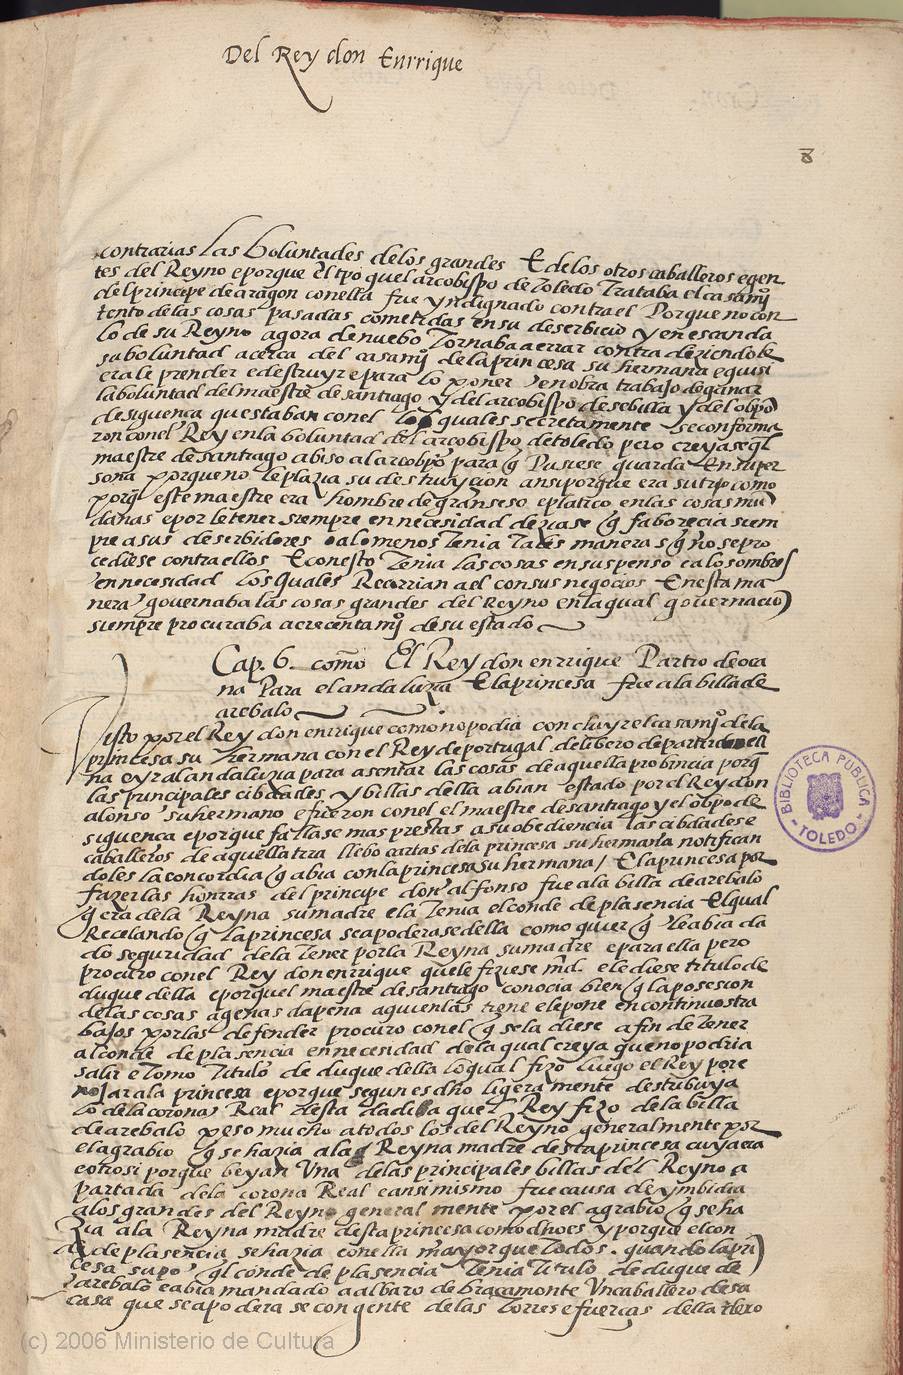 Del Rey don Enrrique
8
contrarias las boluntades delos grandes E delos otros caballeros e gen
tes del Reyno e porque El tpõ quel arcobispo de toledo Trataba el casamjº
del principe de aragon con ella fue yndignado contra el Porque no con
tento delas cosas pasadas cometidas en su deserbicio y en escanda
lo de su Reyno agora de nuebo Tornaba a errar contra deziendole
su boluntad acerca del casamjº dela princesa su hermana e quisi
era le prender e destruyr e para lo poner en obra trabajo de ganar
la boluntad del maestre de santiago y del arcobispo de sebilla y del obpõ
de siguenca que estaban con el los quales secretamente se conforma
ron con el Rey en la boluntad del arcobispo de toledo pero creya se ql
maestre de santiago abiso al arcobpõ para q Pusiese guarda En su per
sona porque no le plazia su destruycion ansi porque era su tio como
porq este maestre era hombre de gran seso e platico en las cosas mũ
danas e por le tener siempre en necesidad dezia se q faborecia siem
pre a sus deserbidores o alomenos tenia tales maneras q no se pro
cediese contra ellos E con esto Tenia las cosas en suspenso e a los ombres
en necesidad los quales Recorrian a el con sus negocios E nesta ma
nera governaba las cosas grandes del Reyno en la qual governacio
siempre procuraba acrecentamjº de su estado
Cap. 6. como El Rey don enrrique Partio de oca
na Para el andaluzia E la princesa fue a la billa de
arebalo
Visto por el Rey don enrrique como no podia concluyr el casamjº de la
princesa su hermana con el Rey de portugal delibero de partir de
na e yr al andaluzia para asentar las cosas de aquella probincia porq
las principales cibdades y billas della abian estado por el Rey don
alonso su hermano e fueron con el el maestre de santiago y el obpo de
siguenca e porque fallase mas prestas a su obediencia las cibdades e
caballeros de aquella trra llebo cartas dela princesa su hermana notifican
doles la concordia q abia con la princesa su hermana / E la princesa por
fazer las honrras del principe don alfonso fue a la billa de arebalo
q era dela Reyna su madre e la tenia el conde de plasencia El qual
Recelando q la princesa se apoderase della como quier q le abia da
do seguridad dela tener por la Reyna su madre e para ella pero
procuro con el Rey don enrrique que le fiziese md. e le diese titulo de
duque della e porquel maestre de santiago conocia bien q la posesion
delas cosas agenas da pena a quien las tiene e le pone en continuos tra
bajos por las defender procuro con el q se la diese a fin de tener
al conde de plasencia en necesidad dela qual creya que no podria
salir e Tomo Titulo de duque della lo qual fizo luego el Rey por e
nojar a la princesa e porque segun es dho ligeramente destribuya
lo de la corona Real desta dadiba quel Rey fizo de la billa
de arebalo peso mucho a todos los del Reyno generalmente por
el agrabio q se hazia a la Reyna madre desta princesa cuya era
e otrosi porque beyan Una delas principales billas del Reyno a
partada dela corona Real e ansi mismo fue causa de ymbidia
a los grandes del Reyno general mente por el agrabio q se ha
zia ala Reyna madre desta princesa como dho es y porque el con
de de plasencia se hazia con ella mayor que todos. quando la pri
cesa supo ql conde de plasencia Tenia titulo de duque de
arebalo e abia mandado a albaro de bracamonte Un caballero de su
casa que se apoderase con gente delas torres e fuerças della
BIBLIOTECA PUBLICA
- TOLEDO -
(c) 2006 Ministerio de Cultura